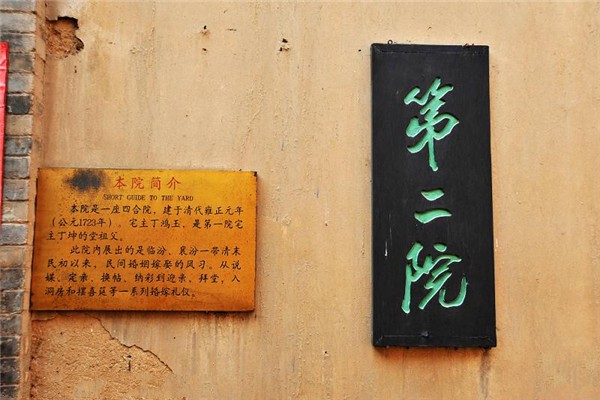 本院简介
SHORT GUIDE TO THE YARD
本院是一座四合院。建于清代雍正元年
(公元1723年)。宅主丁鸿玉，是第一院宅
主丁坤的堂祖父。
此院内展出的是临汾、襄汾一带清末
民初以来，民间婚姻嫁娶的风习。从说
媒、定亲、换帖、纳彩到迎亲、拜堂、入
洞房和摆喜筵等一系列婚嫁礼仪。
第二院